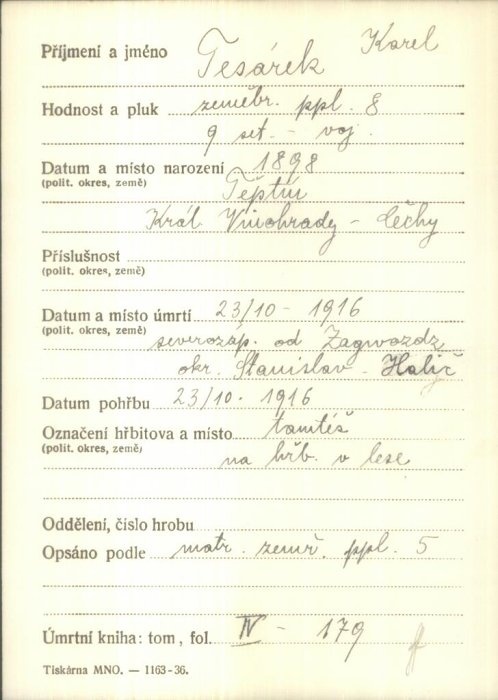 Příjmení a jméno Tesárek Karel
Hodnost a pluk zeměbr. ppl. 8
9 set. - voj.
Datum a místo narození 1898
(polit. okres, země) Těptín
Král. Vinohrady - Čechy
Příslušnost
(polit. okres, země)
Datum a místo úmrtí 23/10 - 1916
(polit. okres, země) severozáp. od Zagwozdz
okr. Stanislav - Halič
Datum pohřbu 23/10. 1916
Označení hřbitova a místo tamtéž
(polit. okres, země) na hřb. v lese
Oddělení, číslo hrobu
Opsáno podle matr. zemř. ppl. 5
Úmrtní kniha: tom, fol. IV - 179
Tiskárna MNO. — 1163-36.